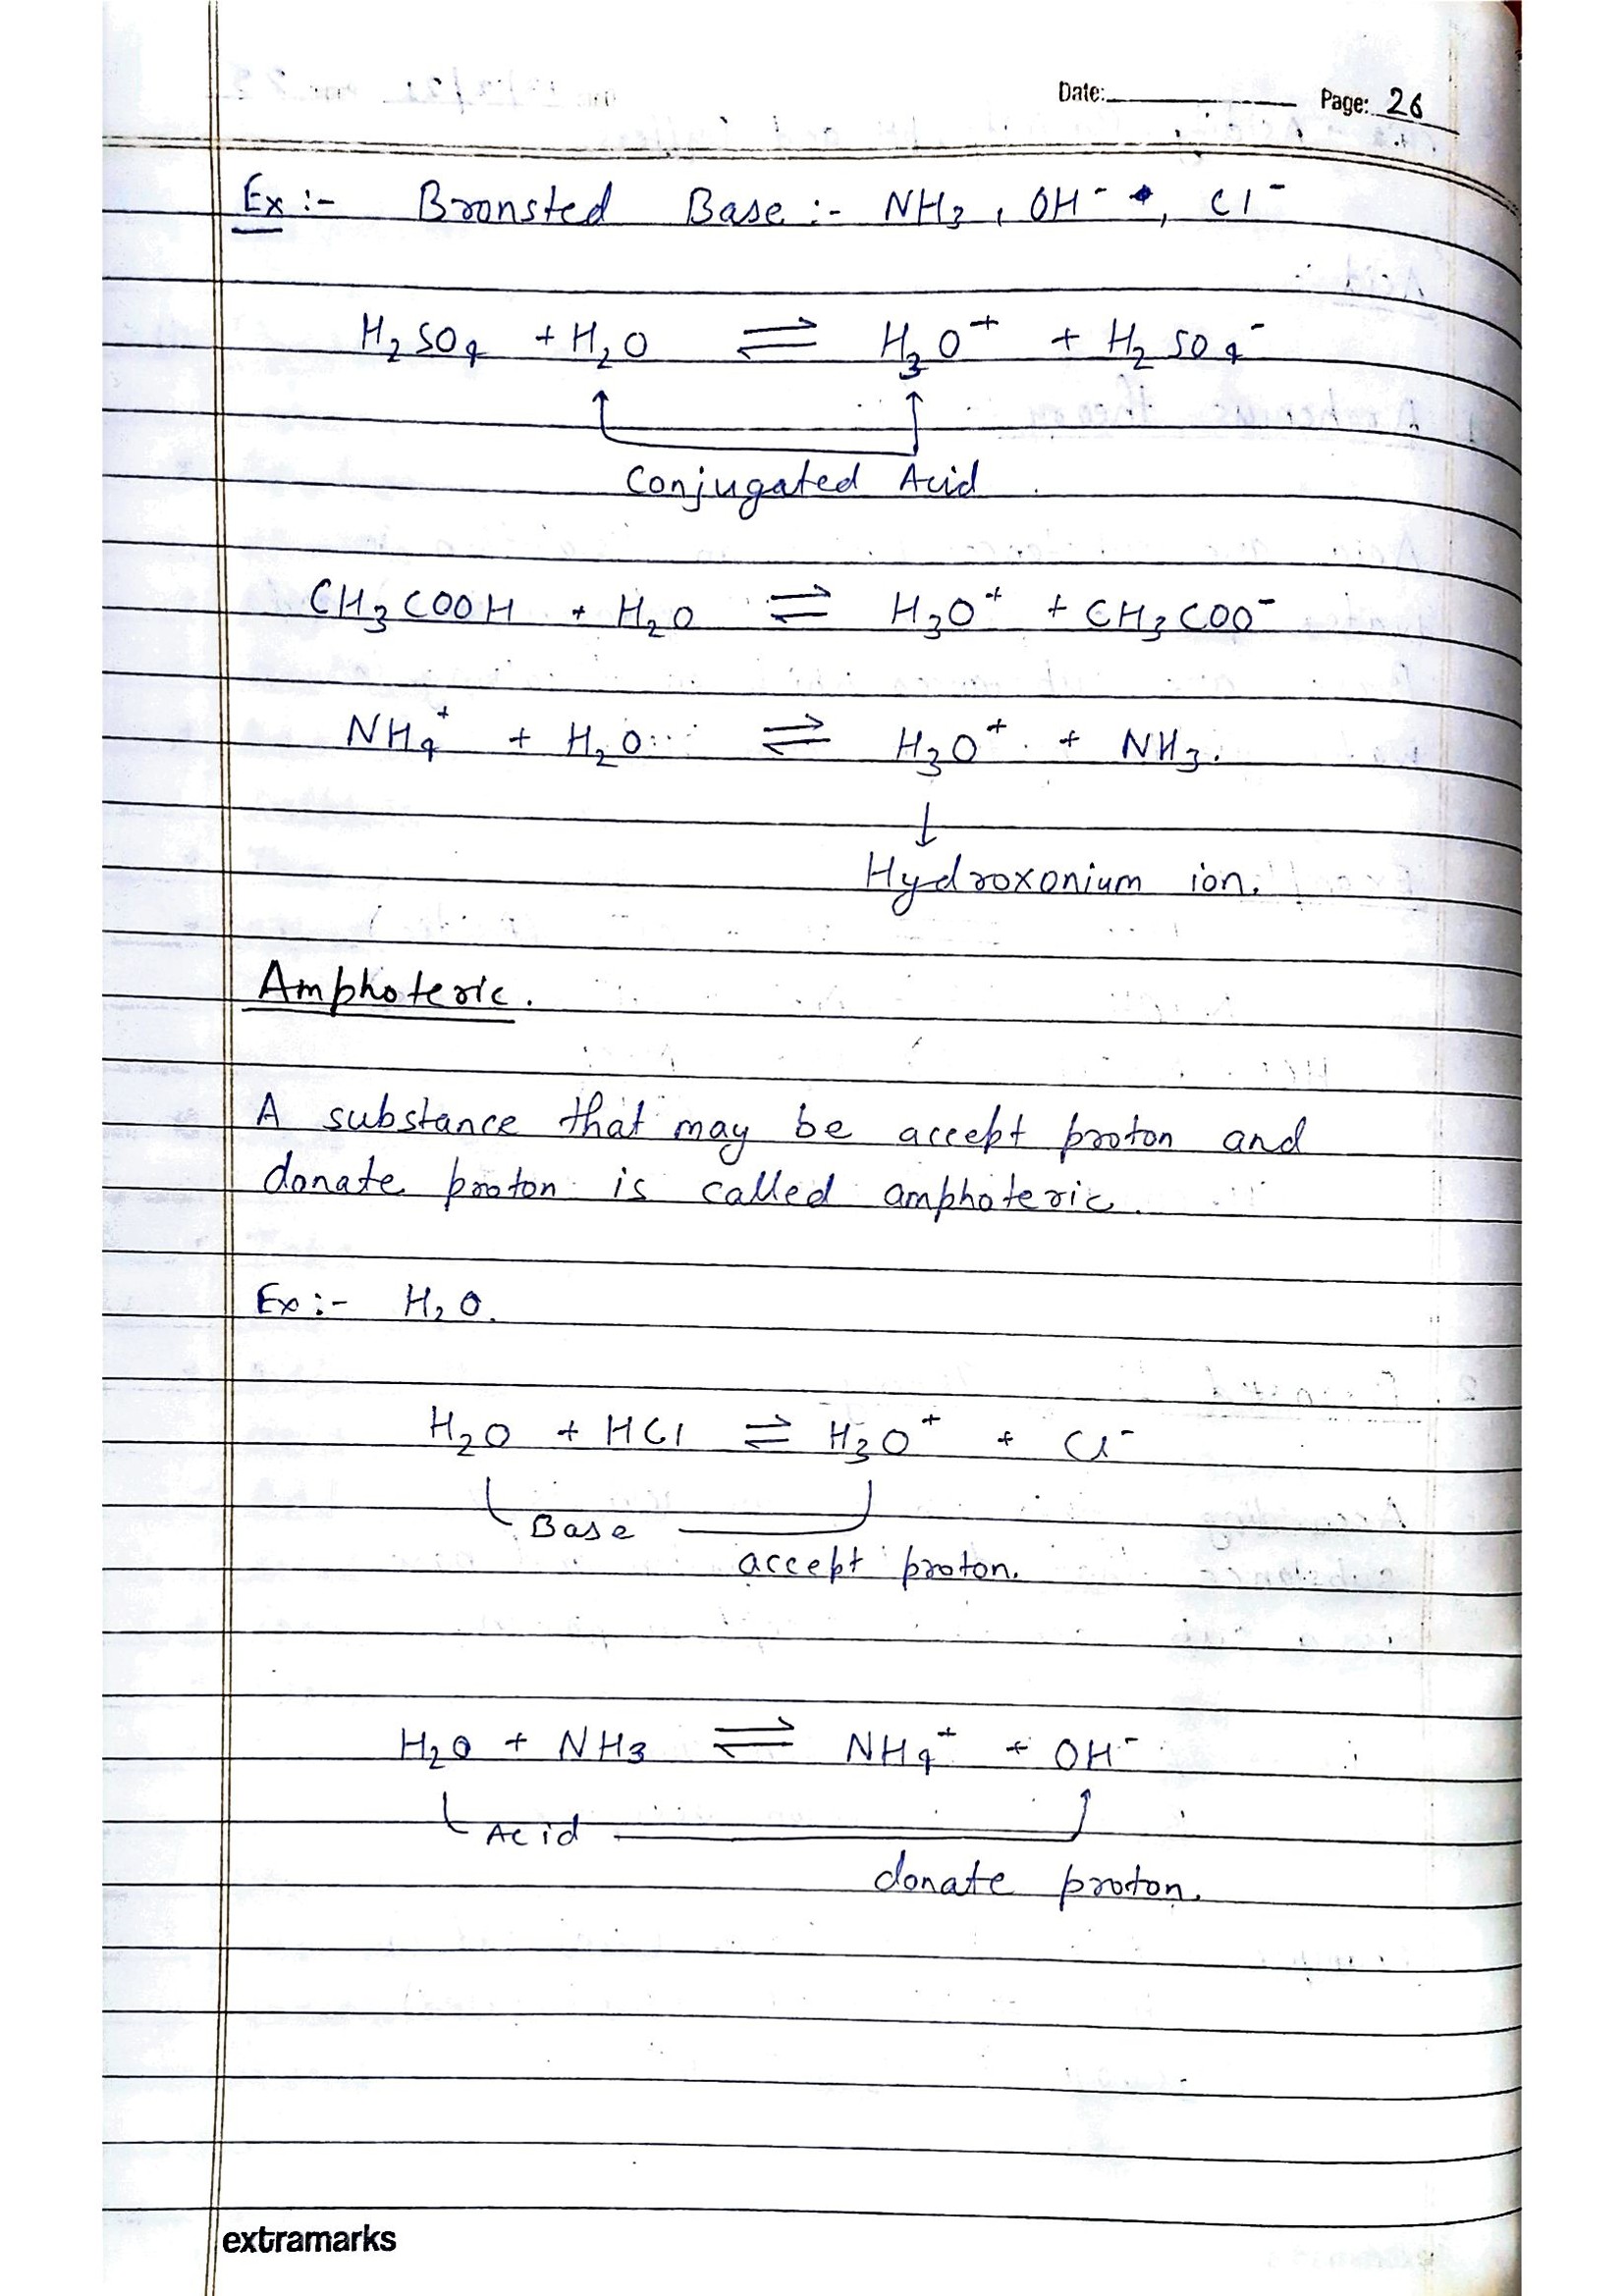 Date: Page: 26
Ex :- Bronsted Base :- NH3, OH-, Cl-
H2SO4 + H2O ⇌ H3O+ + H2SO4-
Conjugated Acid
CH3COOH + H2O ⇌ H3O+ + CH3COO-
NH4+ + H2O ⇌ H3O+ + NH3.
↓
Hydroxonium ion.
Amphoteric.
A substance that may be accept proton and
donate proton is called amphoteric.
Ex :- H2O.
H2O + HCl ⇌ H3O+ + Cl-
Base
accept proton.
H2O + NH3 ⇌ NH4+ + OH-
Acid
donate proton.
extramarks